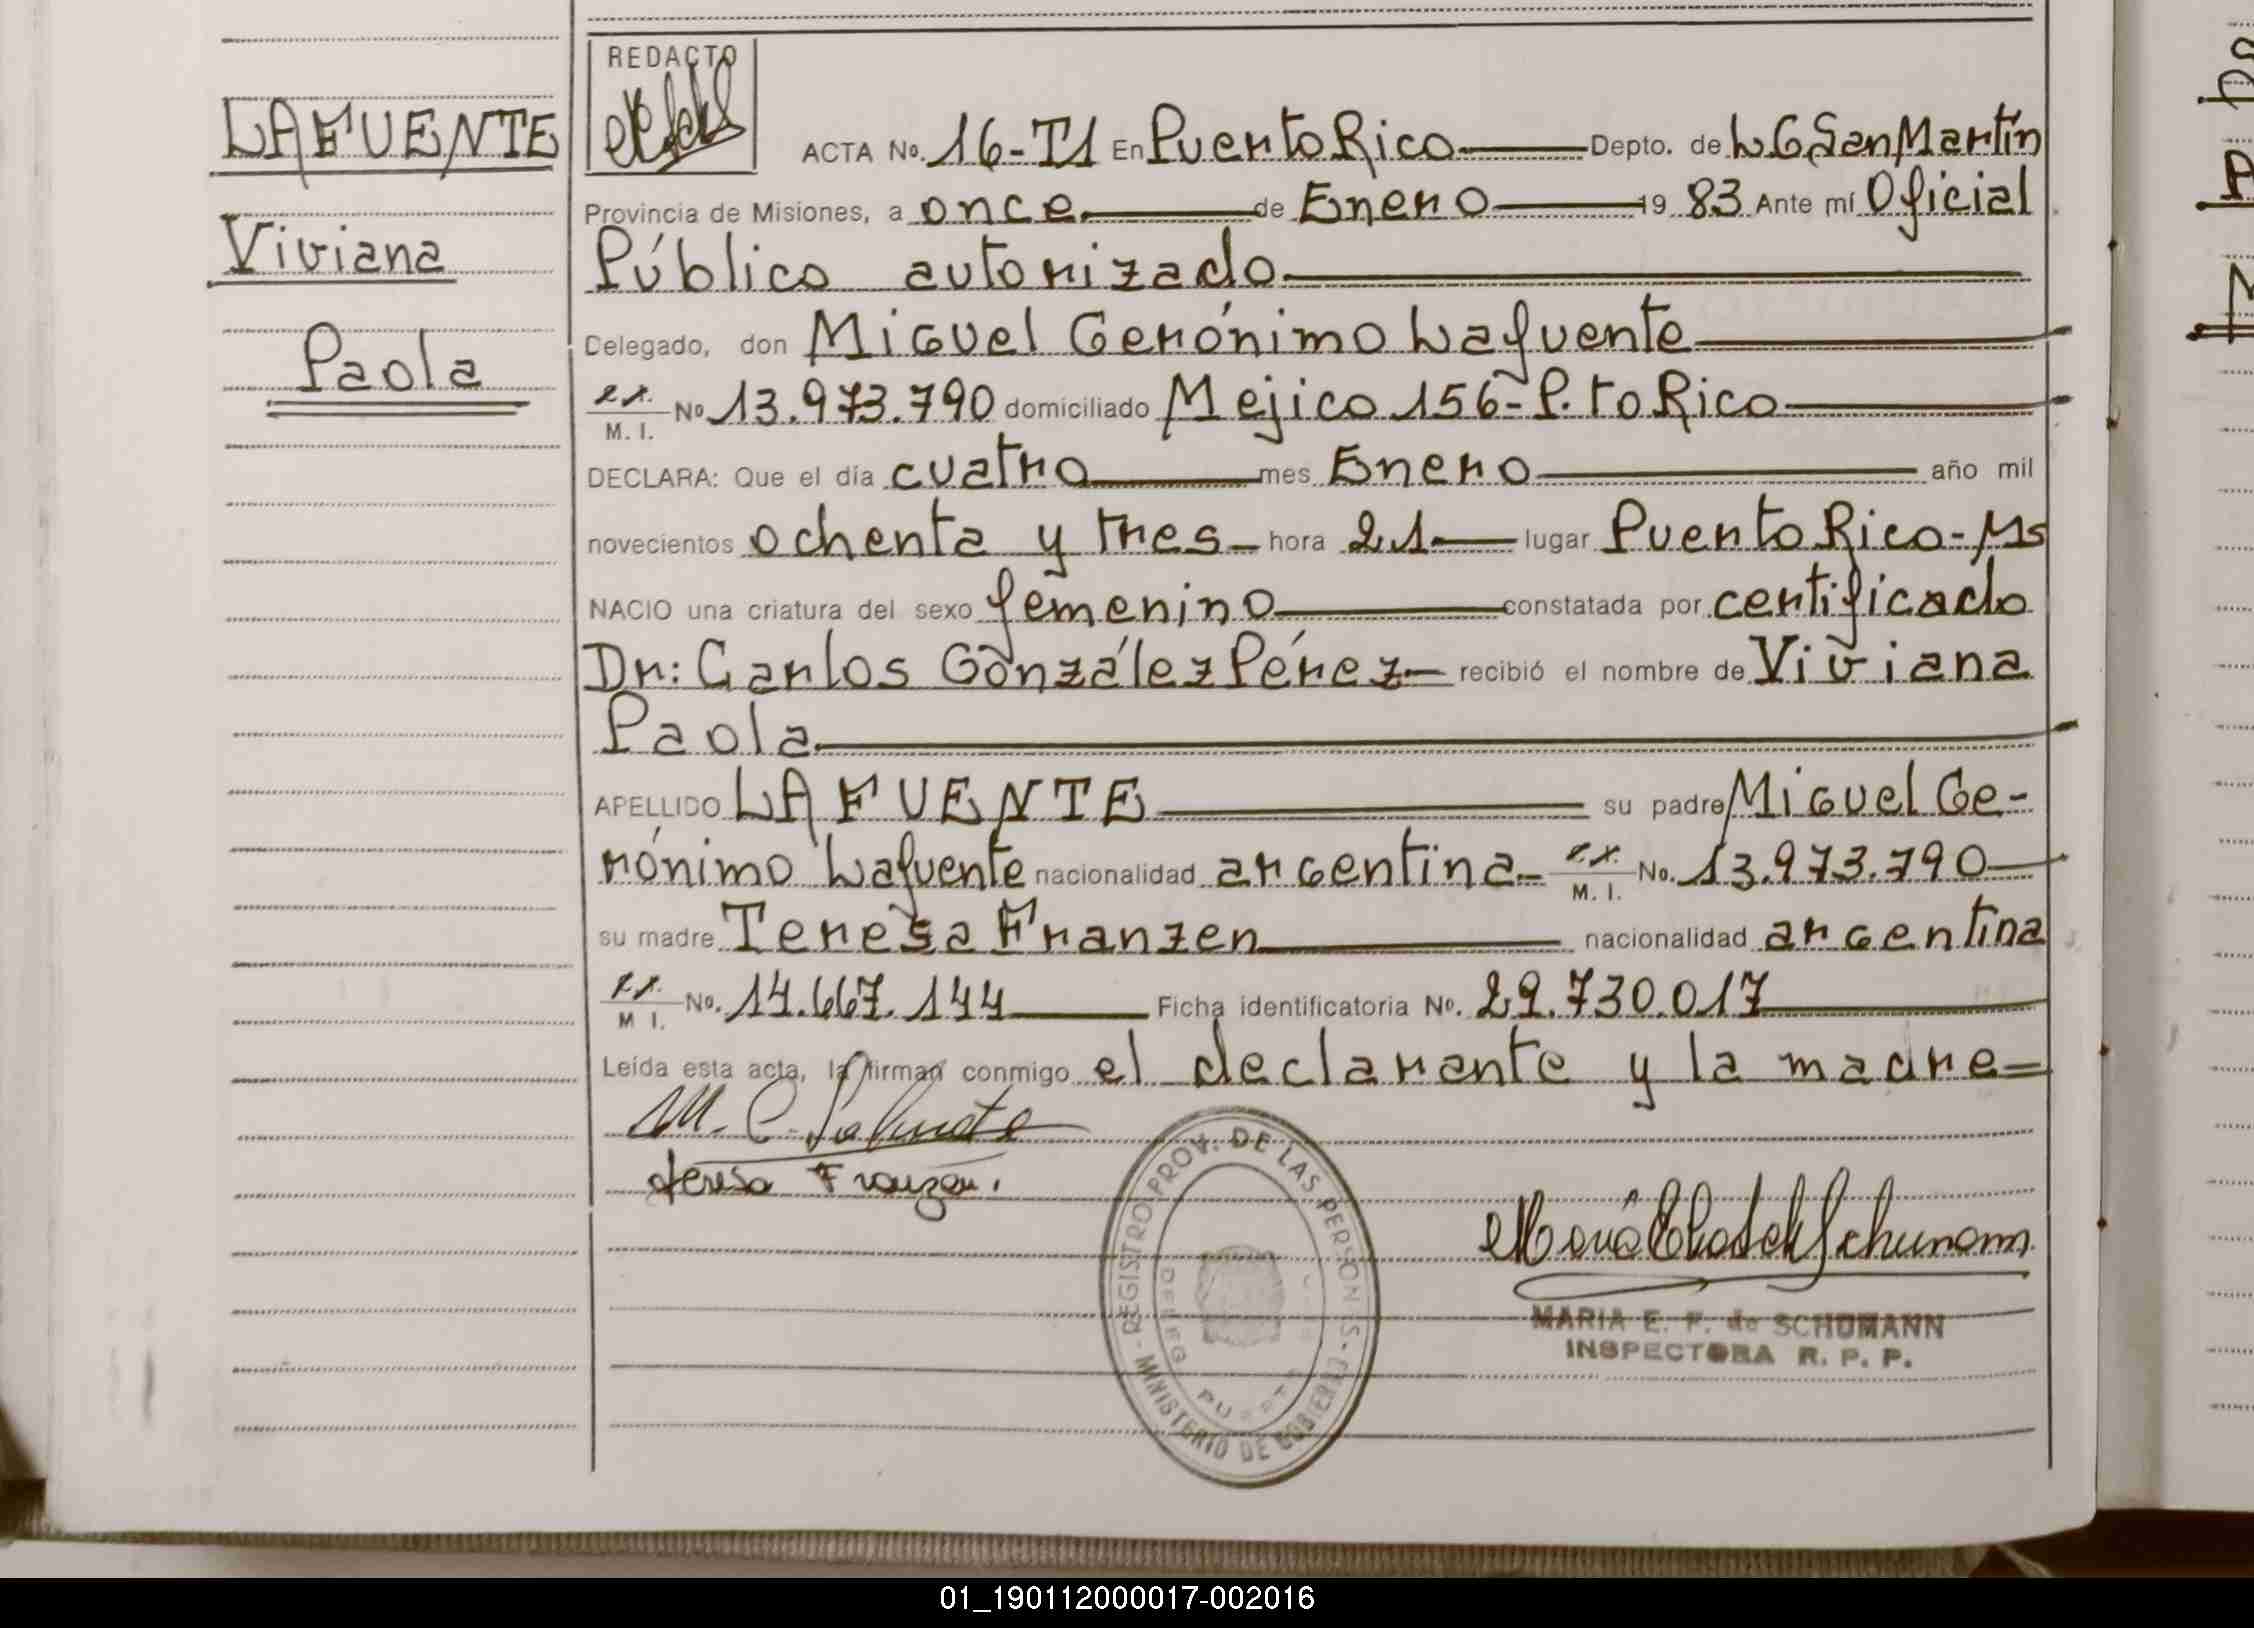 REDACTO
LAFUENTE
Viviana
Paola
ACTA No. 16-T1 En Puerto Rico Depto. de L G San Martín
Provincia de Misiones, a once de Enero 19 83 Ante mí Oficial
Público autorizado
Delegado, don Miguel Gerónimo Lafuente
M. I. No 13.973.790 domiciliado Mejico 156-P.to Rico
DECLARA: Que el día cuatro mes Enero año mil
novecientos ochenta y tres hora 21 lugar Puerto Rico-Ms
NACIO una criatura del sexo femenino constatada por certificado
Dr: Carlos González Pérez recibió el nombre de Viviana
Paola
APELLIDO LAFUENTE su padre Miguel Ge-
rónimo Lafuente nacionalidad argentina M. I. No. 13.973.790
su madre Teresa Franzen nacionalidad argentina
M I. No. 14.667.144 Ficha identificatoria No. 29.730.017
Leída esta acta, la firman conmigo el declarante y la madre
M. G. Lafuente
Teresa Franzen.
REGISTRO PROV. DE LAS PERSONAS - MINISTERIO DE GOBIERNO
DELEG PUERTO
MARIA E. F. de SCHUMANN
INSPECTORA R. P. P.
01_190112000017-002016